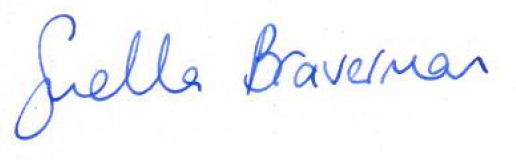 Suella Braverman